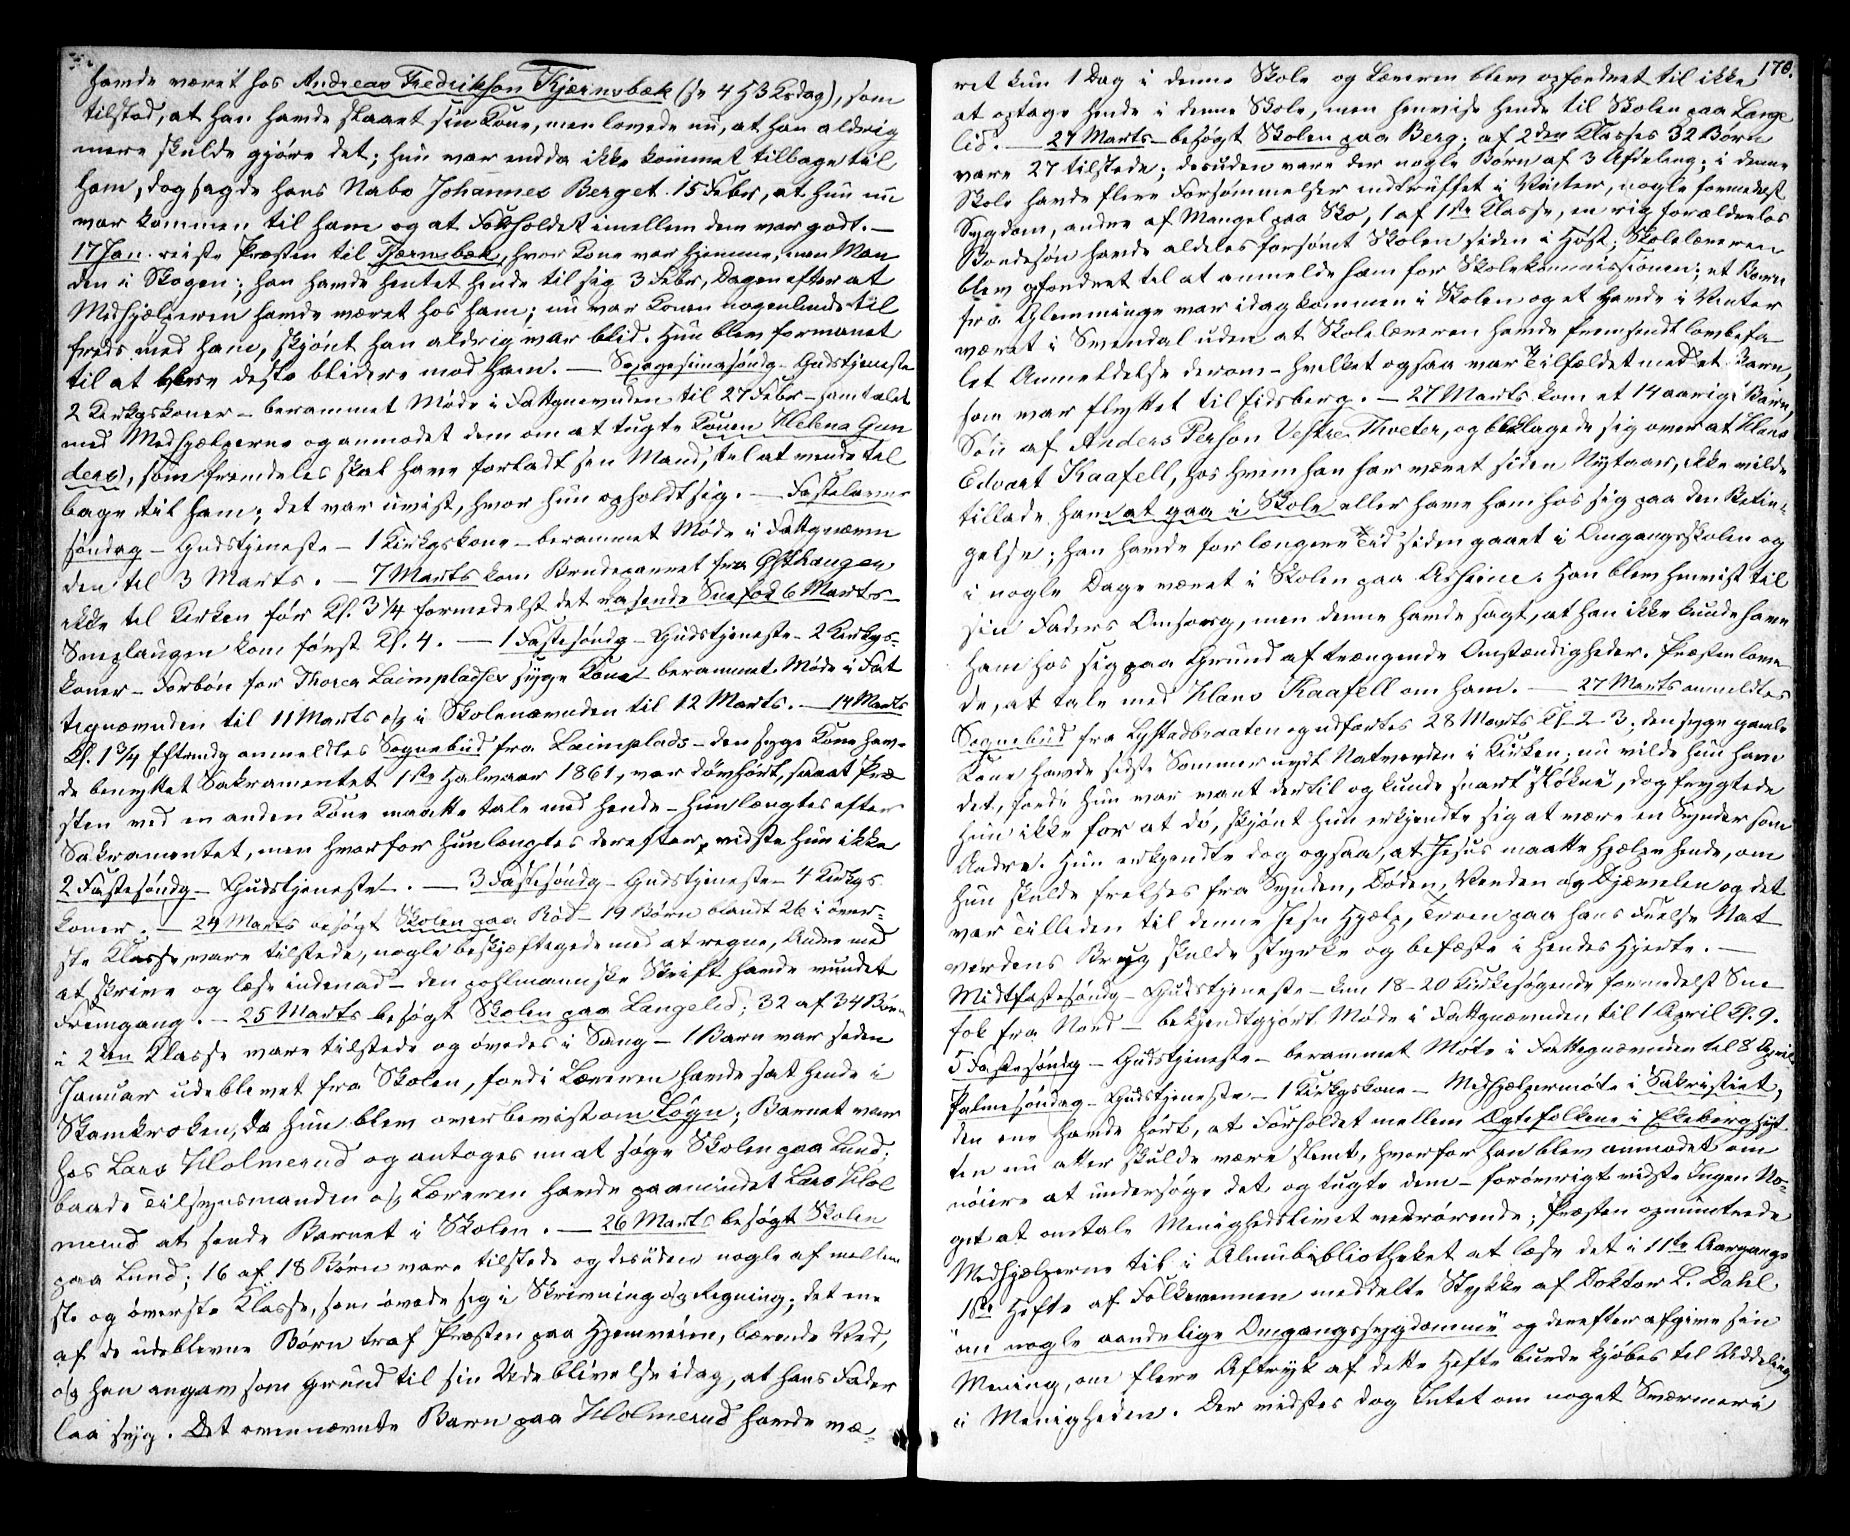 havde været hos Andreas Fredrikson Kjærnsbæk (se 4 H3Krsdag), som
tilstod, at han havde slaaet sin Kone, men lovede nu, at han aldrig
mere skulde gjøre det; hun var endda ikke kommet tilbage til
ham, dog sagde hans Nabo Johannes Berget 15 Febr, at hun nu
var kommen til ham og at Forholdet imellem dem var godt. —
17 Jan. reiste Præsten til Kjærnsbæk, hvor Kone var hjemme, men Man
den i Skogen; han havde hentet hende til sig 3 Febr, Dagen efter at
Medhjælperen havde været hos ham; nu var Konen nogenlunde til
freds med ham, skjønt han aldrig var blid. Hun blev formanet
til at blive desto blidere mod ham. — Sexagesimasøndg - Gudstjeneste
2 Kirkgskoner - berammet Møde i Fattgnævnden til 27 Febr - samtalet
med Medhjælperne og anmodet dem om at tugte Konen Helena Gun
ders), som fremdeles skal have forladt sin Mand, til at vende til
bage til ham; det var uvist, hvor hun opholdt sig. — Fastelavns
søndag - Gudstjeneste - 1 Kirkgskone - berammet Møde i Fattgnævn
den til 3 Marts. — 7 Marts kom Brudeparret fra Østhaugen
ikke til Kirken før Kl. 3 1/4 formedelst det rasende Snefok 6 Marts -
Sneplaugen kom først Kl. 4. — 1 Fastesøndg - Gudstjeneste - 2 Kirkgs-
koner - Forbøn for Thorer Leimpladses syge Kone - berammet Møde i Fat
tignævnden til 11 Marts og i Skolenævnden til 12 Marts. — 14 Marts
Kl. 1 3/4 Eftmdg anmeldtes Sognebud fra Leimplads - den syge Kone hav-
de benyttet Sakramentet 1ste Halvaar 1861, var døvhørt, saaat Præ
sten ved en anden Kone maatte tale med hende - hun længtes efter
Sakramentet, men hvorfor hun længtes derefter, vidste hun ikke
2 Fastesøndg - Gudstjeneste. — 3 Fastesøndg - Gudstjeneste - 4 Kirkgs
koner. — 24 Marts besøgt Skolen paa Rød - 19 Børn blandt 26 i øver-
ste Klasse vare tilstede, nogle beskjæftigede med at regne, Andre med
at skrive og læse indenad - den pohlmannske Skrift havde vundet
Fremgang. — 25 Marts besøgt Skolen paa Langelid; 32 af 34 Børn
i 2den Klasse vare tilstede og øvedes i Sang - 1 Barn var siden
Januar udeblevet fra Skolen, fordi Læreren havde sat hende i
Skamkroken, da hun blev overbevist om Løgn; Barnet var
hos Lars Holmerud og antoges nu at søge Skolen paa Lund;
baade Tilsynsmanden og Læreren havde paamindet Lars Hol
merud at sende Barnet i Skolen. — 26 Marts besøgt Skolen
paa Lund; 16 af 18 Børn vare tilstede og desuden nogle af mellem
ste og øverste Klasse, som øvede sig i Skrivning og Regning; det ene
af de udeblevne Børn traf Præsten paa Hjemveien, bærende Ved,
og han angav som Grund til sin Udeblivelse idag, at hans Fader
laa syg. Det ovennævnte Barn paa Holmerud havde væ-
178.
ret kun 1 Dag i denne Skole og Læreren blev opfordret til ikke
at optage hende i denne Skole, men henvise hende til Skolen paa Lange
lid. — 27 Marts - besøgt Skolen paa Berg; af 2den Klasses 32 Børn
vare 27 tilstede; desuden vare der nogle Børn af 3 Afdeling; i denne
Skole havde flere Forsømmelser indtruffet i Vinter, nogle formedelst
Sygdom, andre af Mangel paa Sko, 1 af 1ste Klasse, en rig forældreløs
Bondesøn havde aldeles forsømt Skolen siden i Høst; Skolelæreren
blev opfordret til at anmelde ham for Skolekommissionen; et Barn
fra Glemminge var idag kommen i Skolen og et havde i Vinter
været i Svendal uden at Skolelæreren havde fremsendt lovbefa-
let Anmeldelse derom - hvilket ogsaa var Tilfældet med et Barn,
som var flyttet til Eidsberg. — 27 Marts kom et 14 aarigt Barn,
Søn af Anders Person Vestre Thveter, og beklagede sig over at Hans
Edvart Kaafell, hos hvem han har været siden Nytaar, ikke vilde
tillade ham at gaa i Skole eller have ham hos sig paa den Betin-
gelse; han havde for længere Tid siden gaaet i Omgangsskolen og
i nogle Dage været i Skolen paa Asheim. Han blev henvist til
sin Faders Omsorg, men denne havde sagt, at han ikke kunde have
ham hos sig paa Grund af trængende Omstændigheder. Præsten love
de, at tale med Hans Kaafell om ham. — 27 Marts anmeldtes
Sognebud fra Lystadbraaten og udførtes 28 Marts Kl. 2-3; den syge gamle
Kone havde sidste Sommer nydt Natverden i Kirken; nu vilde hun have
det, fordi hun var vant dertil og kunde snart "slökne", dog frygtede
hun ikke for at dø, skjønt hun erkjendte sig at være en Synder som
Andre. Hun erkjendte dog ogsaa, at Jesus maatte hjælpe hende, om
hun skulde frelses fra Synden, Døden, Verden og Djævelen og det
var Tilliden til denne Jesu Hjælp, Troen paa hans Frelse Nat
verdens Brug skulde styrke og befæste i hendes Hjerte. —
Midtfastesøndg - Gudstjeneste - kun 18-20 Kirkesøgende formedelst Sne
fok fra Nord - bekjendtgjort Møde i Fattgnævnden til 1 April Kl. 9.
5 Fastesøndg - Gudstjeneste - berammet Møte i Fattegnævnden til 8 April
Palmesøndag - Gudstjeneste - 1 Kirkgskone - Medhjælpermøte i Sakristiet,
den ene havde hørt, at Forholdet mellem Ægtefolkene i Ekeberghyt
ten nu atter skulde være slemt, hvorfor han blev anmodet om
nøiere at undersøge det og tugte dem - forøvrigt vidste Ingen No-
get at omtale Menighedslivet vedrørende; Præsten opmuntrede
Medhjælperne til i Almubibliotheket at læse det i 11te Aargangs
1ste Hefte af Folkevennen meddelte Stykke af Doktor L. Dahl
"om nogle aandelige Omgangssygdomme" og derefter afgive sin
Mening, om flere Aftryk af dette Hefte burde kjøbes til Uddeling
i Menigheden. Der vidstes dog Intet om noget Sværmeri